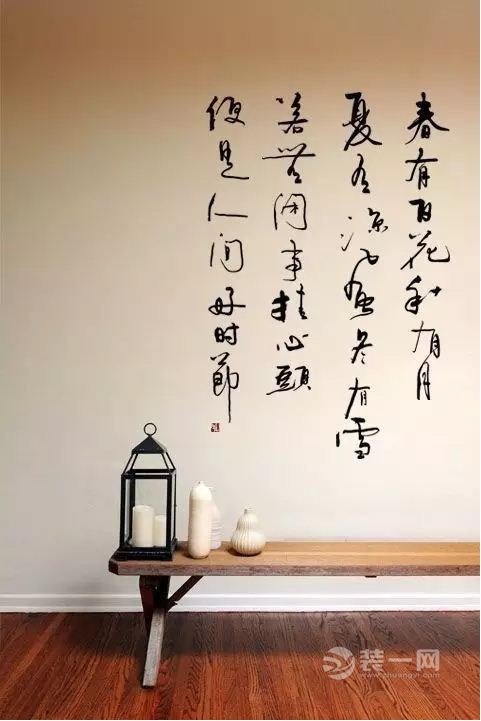 春有百花秋有月
夏有凉風冬有雪
若無闲事挂心頭
便是人间好时節
装一网
www.zhuangyi.com